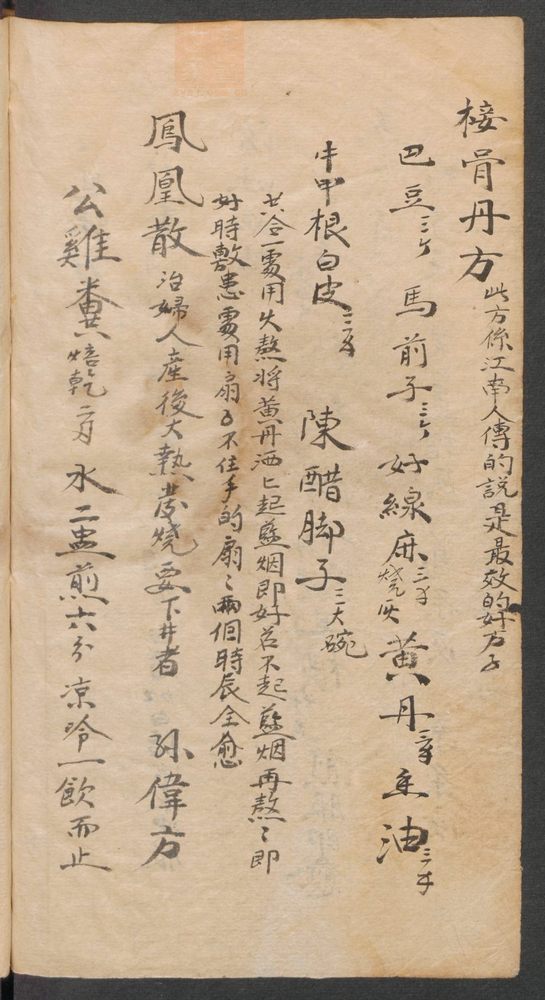 接骨丹方 此方係江南人傳的說是最效的好方子
巴豆三个 馬前子三个 好線麻三才燒灰 黃丹三才 香油三才
牛甲根白皮三才 陳醋腳子三大碗
共合一處用火熬將黃丹洒上起藍烟即好若不起藍烟再熬〻即
好時敷患處用扇子不住手的扇〻兩個時辰全愈
鳳凰散 治婦人産後大熱發燒要下井者 孫偉方
公雞糞焙乾 水二盅煎六分凉冷一飲而止